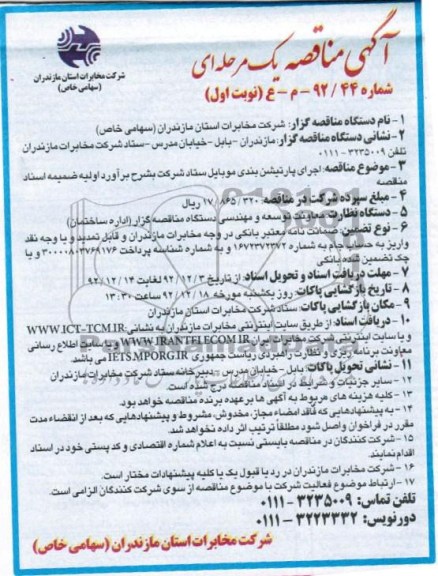 آگهی مناقصه یک مرحله ای
شماره ۹۲/۴۴ - م - ع (نوبت اول)
شرکت مخابرات استان مازندران
(سهامی خاص)
۱- نام دستگاه مناقصه گزار: شرکت مخابرات استان مازندران (سهامی خاص)
۲- نشانی دستگاه مناقصه گزار: مازندران - بابل - خیابان مدرس - ستاد شرکت مخابرات مازندران
تلفن ۳۲۳۵۰۰۹-۰۱۱۱
۳- موضوع مناقصه: اجرای پارتیشن بندی موبایل ستاد شرکت بشرح برآورد اولیه ضمیمه اسناد
مناقصه
۴- مبلغ سپرده شرکت در مناقصه: ۱۷/۸۶۵/۳۲۰ ریال
۵- دستگاه نظارت: معاونت توسعه و مهندسی دستگاه مناقصه گزار (اداره ساختمان)
۶- نوع تضمین: ضمانت نامه معتبر بانکی در وجه مخابرات مازندران و قابل تمدید و یا وجه نقد
واریز به حساب جام به شماره ۱۶۷۲۳۷۲۳۷۲ و به شماره شناسه پرداخت و یا
چک تضمین شده بانکی
۷- مهلت دریافت اسناد و تحویل اسناد: از تاریخ ۹۲/۱۲/۳ لغایت ۹۲/۱۲/۱۴
۸- تاریخ بازگشایی پاکات: روز یکشنبه مورخه ۹۲/۱۲/۱۸ ساعت ۱۳:۳۰
۹- مکان بازگشایی پاکات: ستاد شرکت مخابرات استان مازندران
۱۰- دریافت اسناد: از طریق سایت اینترنتی مخابرات مازندران به نشانی: WWW.ICT-TCM.IR
و یا سایت اینترنتی شرکت مخابرات ایران WWW.IRANTELECOM.IR و سایت اطلاع رسانی
معاونت برنامه ریزی و نظارت راهبردی ریاست جمهوری IETS.MPORG.IR می باشد.
۱۱- نشانی تحویل پاکات: بابل - خیابان مدرس - دبیرخانه ستاد شرکت مخابرات مازندران
۱۲- سایر جزئیات و شرایط در اسناد مناقصه درج شده است.
۱۳- کلیه هزینه های مربوط به آگهی ها بر عهده برنده مناقصه خواهد بود.
۱۴- به پیشنهادهایی که فاقد امضاء مجاز، مخدوش، مشروط و پیشنهادهایی که بعد از انقضاء مدت
مقرر در فراخوان واصل شود مطلقاً ترتیب اثر داده نخواهد شد.
۱۵- شرکت کنندگان در مناقصه بایستی نسبت به اعلام شماره اقتصادی و کد پستی خود در اسناد
اقدام نمایند.
۱۶- شرکت مخابرات مازندران در رد یا قبول یک یا کلیه پیشنهادات مختار است.
۱۷- ارتباط موضوع فعالیت شرکت با موضوع مناقصه از سوی شرکت کنندگان الزامی است.
تلفن تماس: ۳۲۳۵۰۰۹-۰۱۱۱
دورنویس: ۳۲۲۳۳۳۲-۰۱۱۱
شرکت مخابرات استان مازندران (سهامی خاص)